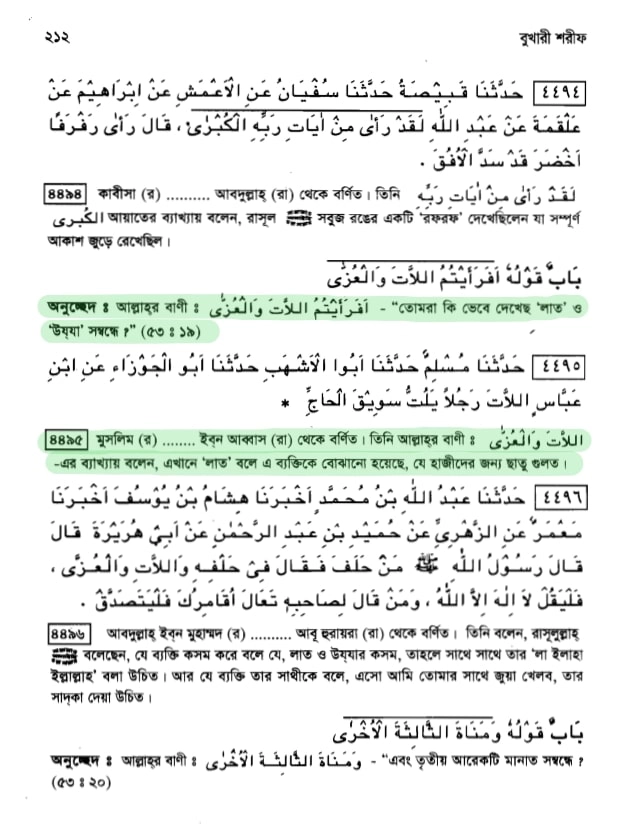 ২১২ বুখারী শরীফ
٤٤٩٤ حَدَّثَنَا قَبِيْصَةُ حَدَّثَنَا سُفْيَانُ عَنِ الْاَعْمَشِ عَنْ اِبْرَاهِيْمَ عَنْ
عَلْقَمَةَ عَنْ عَبْدِ اللّٰهِ لَقَدْ رَأٰى مِنْ اٰيَاتِ رَبِّهِ الْكُبْرٰى ، قَالَ رَأٰى رَفْرَفًا
اَخْضَرَ قَدْ سَدَّ الْاُفُقَ .
৪৪৯৪ কাবীসা (র) .......... আবদুল্লাহ্ (রা) থেকে বর্ণিত। তিনি لَقَدْ رَأٰى مِنْ اٰيَاتِ رَبِّهِ
الْكُبْرٰى আয়াতের ব্যাখ্যায় বলেন, রাসূল ﷺ সবুজ রঙের একটি 'রফরফ' দেখেছিলেন যা সম্পূর্ণ
আকাশ জুড়ে রেখেছিল।
بَابٌ قَوْلُهُ اَفَرَأَيْتُمُ اللَّاتَ وَالْعُزّٰى
অনুচ্ছেদ : আল্লাহ্‌র বাণী : اَفَرَأَيْتُمُ اللَّاتَ وَالْعُزّٰى - "তোমরা কি ভেবে দেখেছ 'লাত' ও
'উয্‌যা' সম্বন্ধে ?" (৫৩ : ১৯)
٤٤٩٥ حَدَّثَنَا مُسْلِمٌ حَدَّثَنَا اَبُوا الْاَشْهَبِ حَدَّثَنَا اَبُو الْجَوْزَاءِ عَنِ ابْنِ
عَبَّاسٍ اللَّاتَ رَجُلاً يَلُتُّ سَوِيْقَ الْحَاجِّ *
৪৪৯৫ মুসলিম (র) ........ ইব্‌ন আব্বাস (রা) থেকে বর্ণিত। তিনি আল্লাহ্‌র বাণী : اللَّاتَ وَالْعُزّٰى
-এর ব্যাখ্যায় বলেন, এখানে 'লাত' বলে এ ব্যক্তিকে বোঝানো হয়েছে, যে হাজীদের জন্য ছাতু গুলত।
٤٤٩٦ حَدَّثَنَا عَبْدُ اللّٰهِ بْنُ مُحَمَّدٍ اَخْبَرَنَا هِشَامُ بْنُ يُوْسُفَ اَخْبَرَنَا
مَعْمَرٌ عَنِ الزُّهْرِيِّ عَنْ حُمَيْدِ بْنِ عَبْدِ الرَّحْمٰنِ عَنْ اَبِيْ هُرَيْرَةَ قَالَ
قَالَ رَسُوْلُ اللّٰهِ ﷺ مَنْ حَلَفَ فَقَالَ فِىْ حَلْفِهِ وَاللَّاتِ وَالْعُزّٰى ،
فَلْيَقُلْ لاَ اِلٰهَ اِلاَّ اللّٰهُ ، وَمَنْ قَالَ لِصَاحِبِهِ تَعَالَ اُقَامِرْكَ فَلْيَتَصَدَّقْ .
৪৪৯৬ আবদুল্লাহ্ ইব্‌ন মুহাম্মদ (র) .......... আবূ হুরায়রা (রা) থেকে বর্ণিত। তিনি বলেন, রাসূলুল্লাহ্
ﷺ বলেছেন, যে ব্যক্তি কসম করে বলে যে, লাত ও উয্‌যার কসম, তাহলে সাথে সাথে তার 'লা ইলাহা
ইল্লাল্লাহ' বলা উচিত। আর যে ব্যক্তি তার সাথীকে বলে, এসো আমি তোমার সাথে জুয়া খেলব, তার
সাদ্‌কা দেয়া উচিত।
بَابٌ قَوْلُهُ وَمَنَاةَ الثَّالِثَةَ الْاُخْرٰى
অনুচ্ছেদ : আল্লাহ্‌র বাণী : وَمَنَاةَ الثَّالِثَةَ الْاُخْرٰى - "এবং তৃতীয় আরেকটি মানাত সম্বন্ধে ?
(৫৩ : ২০)